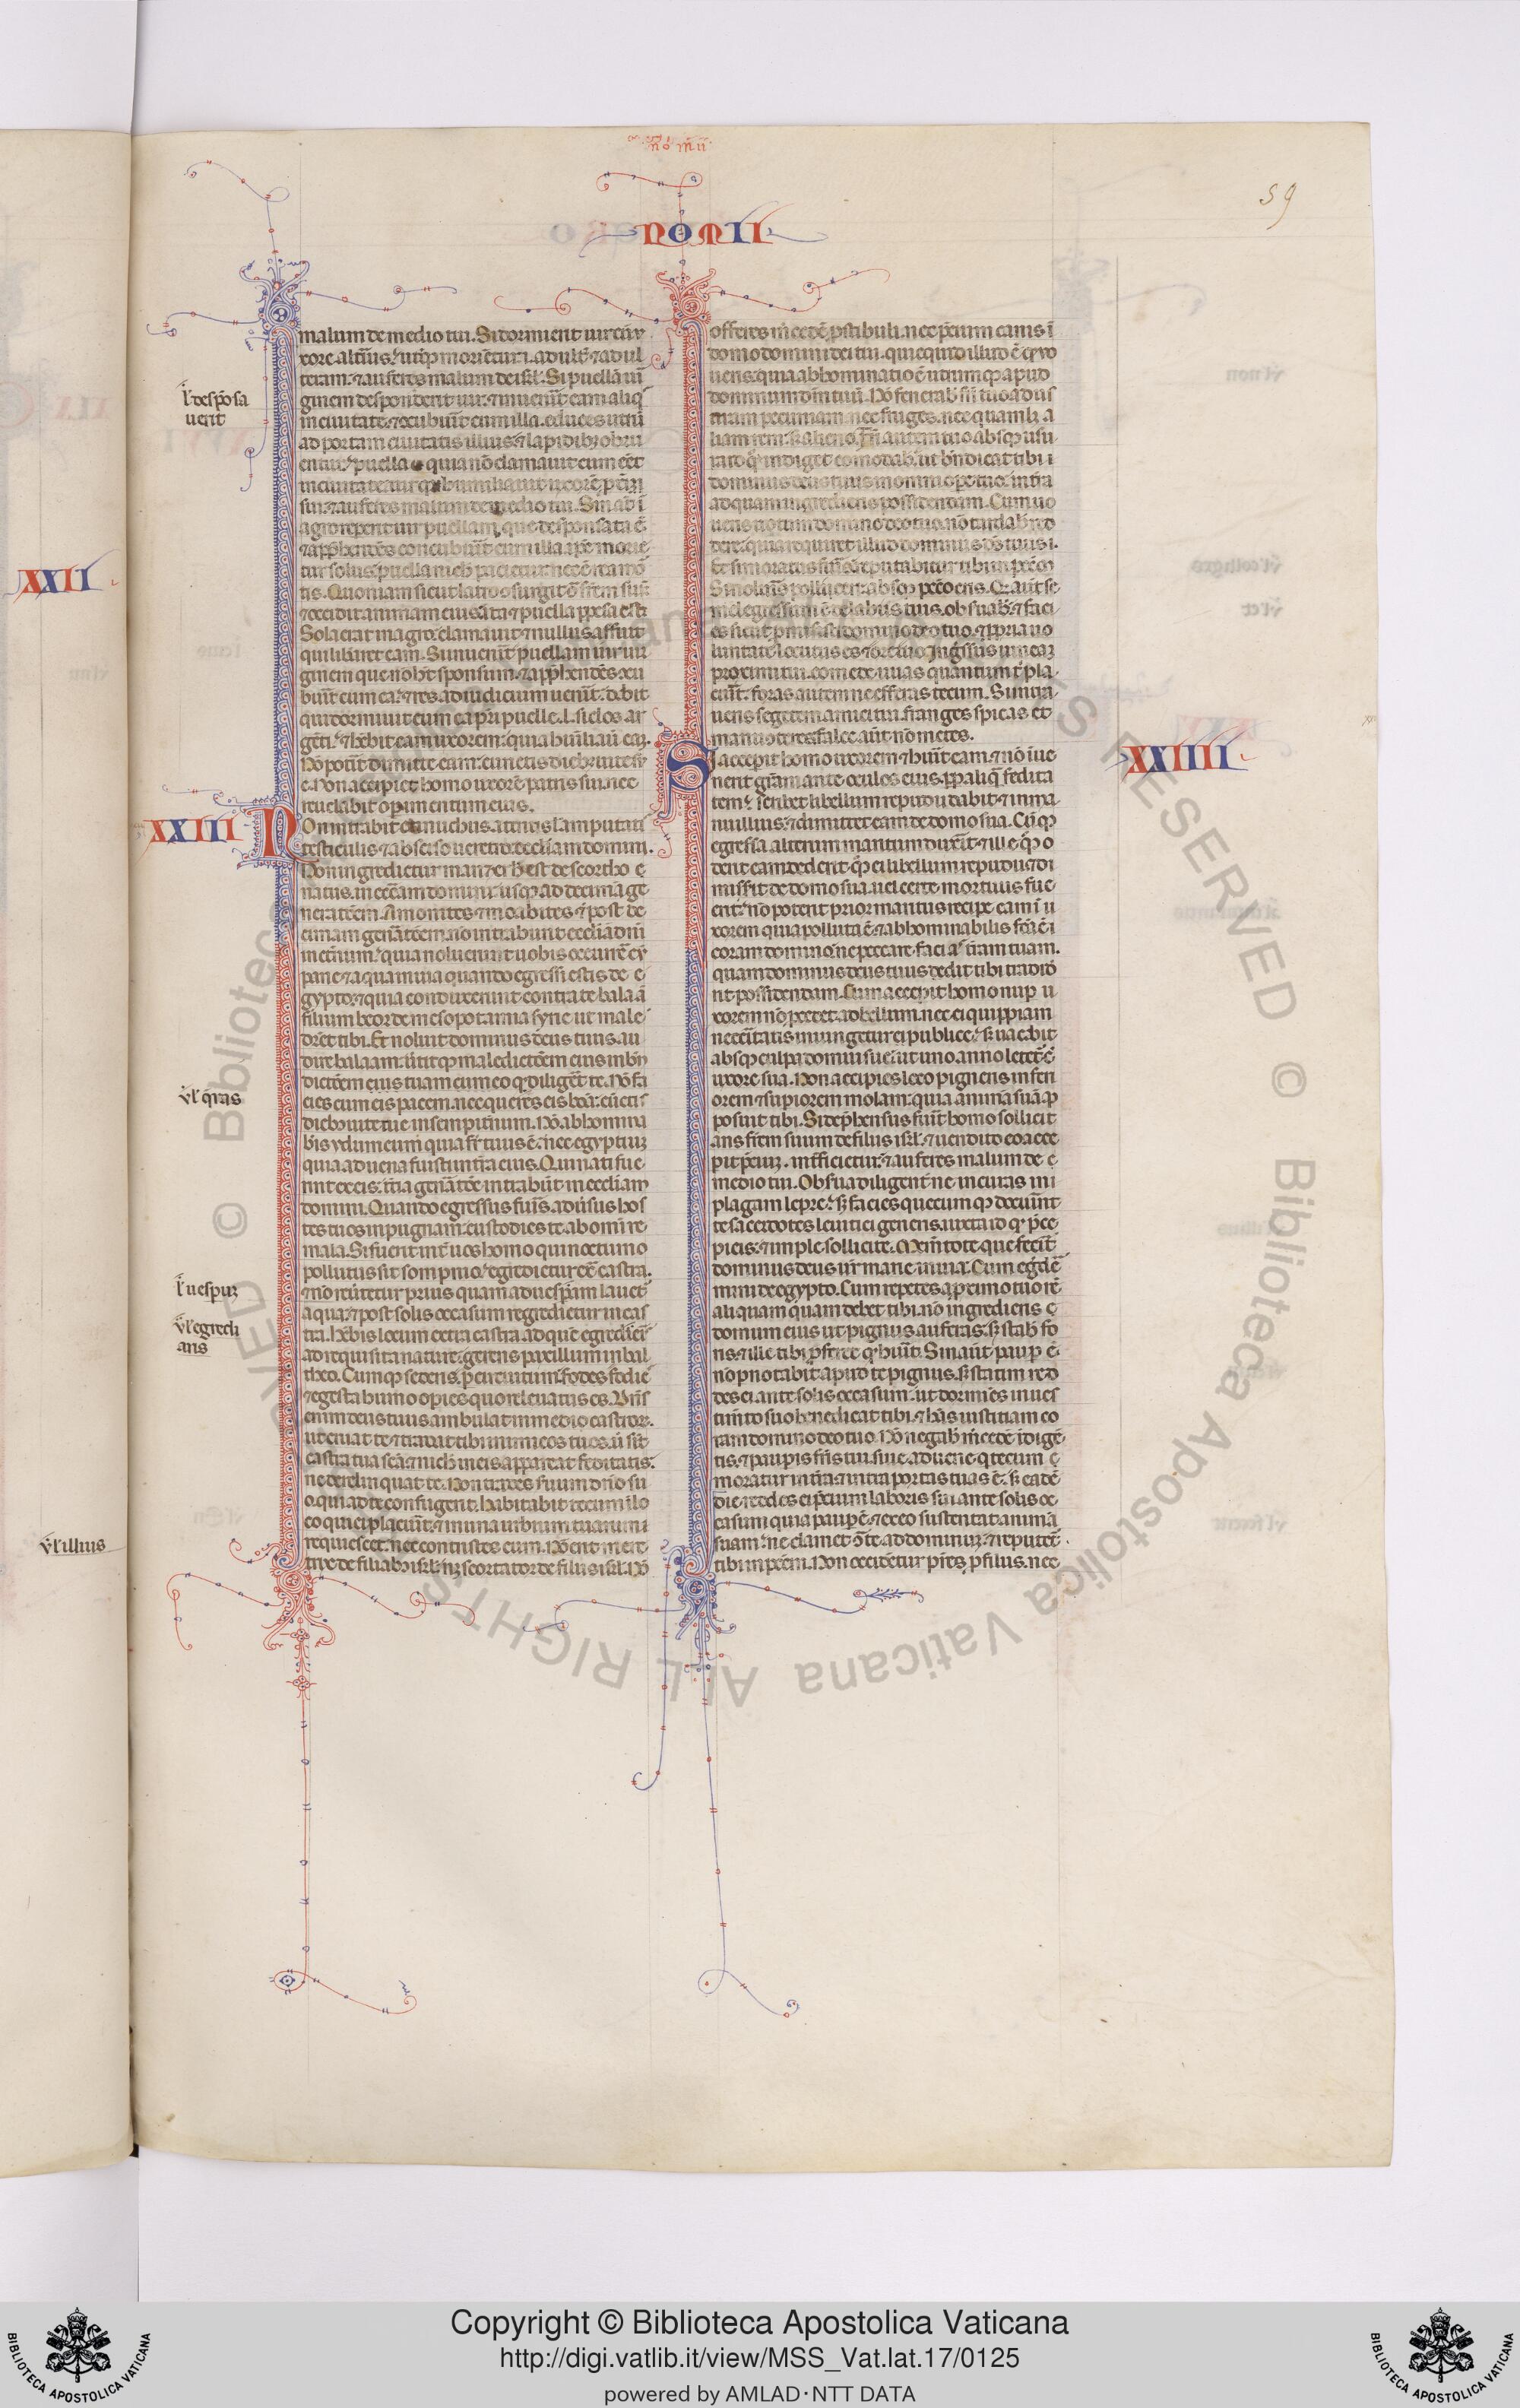 59
NOMII
malum de medio tui. Si dormierit uir cũ u
xore altĩus: ut̃q; moriet̃ur .i. adult̃ ⁊ adul
tera: ⁊ auferes malum de isrl̃. Si puellã uir̃
ginem desponderit uir: ⁊ inuenit̃ eam aliq̃s
in ciuitate: ⁊ cũcubuit̃ cum illa. educes utrũq;
ad portam ciuitatis illius: ⁊ lapidibȝ obru
entur. puella quia nõ clamauit cum eẽt
in ciuitate: uir quia humiliauit uxorẽ pxĩmi
sui: ⁊ auferes malum de medio tui. Sin aũt ĩ
agro reperit uir puellam, que desponsata ẽ:
⁊ app̃hendẽs concubuit̃ cum illa: ipse morie
tur solus. puella nichil pacietur: nec ẽ rea mõ
tis. Quoniam sicut latro ↄsurgit ↄ̃ frẽm suũ
⁊ occidit animam eius: ita ⁊ puella ppessa est.
Sola erat in agro. clamauit ⁊ nullus affuit
qui libãret eam. Si inuenit̃ puellam uir uir
ginem que nõ hẽt sponsum: ⁊ app̃hendẽs ↄcu
buit̃ cum ea: ⁊ res ad iudicium uenit̃: dabit
qui dormiuit cum ea pr̃i puelle .L. siclos ar
gẽti: ⁊ hẽbit eam uxorem: quia hũiliauit eaȝ.
Nõ potit̃ dimitte eam: cunctis diebȝ uite su
e. Non accipiet homo uxorẽ patris sui: nec
reuelabit operimentum eius.
XXIII
Non intrabit eunuchus attritis ł amputatis
testiculis ⁊ abscisso ueretro ecclesiam domini.
Non ingredietur manzer h̃ est de scorto
natus in ecc̃am domini: usq; ad decimã ge
neratõem. Amonites ⁊ moabites ⁊ post de
cimam genãtõem nõ intrabunt ecc̃iã dñi
in et̃num: quia noluerunt uobis occurre cũ
pane ⁊ aqua in uia quando egressi estis de e
gypto: ⁊ quia conduxerunt contra te balaã
filium beor de mesopotamia syrie ut male
dicet̃ tibi. Et noluit dominus deus tuus au
dire balaam: uertitq; maledictõem eius in bñ
dictõem tuam eo q̃ diligeret te. Nõ fa
cies cum eis pacem: nec queres eis bona: cunctis
diebȝ uite tue in sempiternum. Nõ abhomina
bis ydumeum quia fr̃ tuus ẽ: nec egyptiuȝ
quia aduena fuisti in tr̃a eius. Qui nati fue
rint ex eis: tercia genãtõe intrabũt in eccliam
domini. Quando egressus fuis adũsus hos
tes tuos in pugnam: custodies te ab om̃i re
mala. Si fuerit int̃ uos homo qui nocturno
pollutus sit sompnio: egredietur ext̃ castra.
⁊ nõ reũtetur priusquam ad uesp̃am lauet̃
aqua: ⁊ post solis occasum regredietur in cas
tra. Hẽbis locum extra castra ad quẽ egredieris
ad requisita nature: gerens paxillum in bal
theo. Cumq; sederis, p̃ circuitum fodes fodie
⁊ egesta humo opies quo releuatus es. Dñs
enim deus tuus ambulat in medio castroꝝ:
ut eruat te: ⁊ tradat tibi inimicos tuos. ut sint
castra tua scã: ⁊ nichil in eis appareat feditatis:
ne derelinquat te. Non trades seruum dño su
o: qui ad te confugerit. habitabit tecum in lo
co qui ei placuit̃: ⁊ in una urbium tuarum
requiescet. nec contristes eum. Nõ erit mere
trix de filiabȝ isrl̃: neq; scortator de filiis isrl̃. Nõ
ł desp̃osa
uerit
uł q̃ras
ł uesp̃uȝ
uł egredi
aris
offeres m̃cedẽ pstibuli. nec p̃cium canis ĩ
domo domini dei tui. quicquid illud ẽ q̃ uo
ueris: quia abhominatio ẽ utrumq; apud
dominum dm̃ tuũ. Nõ fenerab̃ fr̃i tuo ad usu
ram pecuniam nec fruges: nec quamlibet a
liam rem: sȝ alieno. Fr̃i autem tuo absq; usu
ra id q̃ indiget cõmodab̃: ut bñdicat tibi
dominus deus tuus in omni ope tuo: in tr̃a
ad quam ingredieris possidendam. Cum uo
ueris uotum domino deo tuo: nõ tardab̃ red
dere: quia requiret illud dominus ds̃ tuus:
Et si moratus fuis̃ reputabitur tibi in pctm̃
Si nolueris polliceri: absq; pctõ eris. Q̃ aũt se
mel egressum ẽ de labiis tuis. obseruab̃: ⁊ faci
es sicut pmisisti domino deo tuo. ⁊ ppria uo
luntate locutus es ⁊ ore tuo. Ingressus uineaȝ
proximi tui. comede uuas quantum tibi pla
cuit̃: foras autem ne efferas tecum. Si intra
ueris segetem amici tui. franges spicas et
manu conteres: falce aũt nõ metes.
XXIIII
Si acceperit homo uxorem ⁊ hũit eam. ⁊ nõ inue
nerit gr̃am ante oculos eius. pp̃ aliquã fedita
tem: scribet libellum repudii ⁊ dabit in ma
nu illius: ⁊ dimittet eam de domo sua. Cũq;
egressa alterum maritum duxerit: ⁊ ille quoq; o
derit eam dederitq; ei libellum repudii: ⁊ di
miserit de domo sua: uel certe mortuus fue
rit: nõ poterit prior maritus recipe eam ĩ u
xorem quia polluta ẽ: ⁊ abhominabilis fc̃a ẽ
coram domino: ne peccare facias tr̃am tuam.
quam dominus deus tuus tibi tradid̃
it possidendam. Cum acceperit homo nup u
xorem nõ pcedet ad bellum. nec ei quippiam
necc̃itatis iniungetur publice: sȝ uacabit
absq; culpa domui sue: ut uno anno letet̃ cũ
uxore sua. Non accipies loco pigneris inferi
orem ⁊ supiorem molam: quia animã suã ap
posuit tibi. Si dep̃hensus fuit̃ homo sollicit
ans frẽm suum de filiis isrl̃: ⁊ uendito eo acce
perit p̃ciuȝ. int̃ficietur: ⁊ auferes malum de
medio tui. Obserua diligent̃ ne incurras in
plagam lepre: sȝ facies quecumq; docuerint
te sacerdotes leuitici generis iuxta id q̃ p̃ce
pi eis: ⁊ imple sollicite. Mem̃tote que fecit̃
dominus deus ur̃ marie in uia: cum egrede
mini de egypto. Cum repetes a pximo tuo rẽ
aliquam quam debet tibi. nõ ingredieris
domum eius ut pignus auferas. sȝ stab̃ fo
ris: ⁊ ille tibi pferet q̃ hũit. Sin aũt paup ẽ:
nõ pnoctabit apud te pignus. sȝ statim red
des ei ante solis occasum: ut dormies in ues
tim̃to suo benedicat tibi: ⁊ hẽas iusticiam co
ram domino deo tuo. Nõ negab̃ m̃cedẽ indigẽ
tis: ⁊ paupis fr̃is tui: siue aduene q̃ tecum
moratur in tr̃a: ⁊ intra portas tuas ẽ. sȝ eadẽ
die reddes ei p̃cium laboris sui ante solis oc
casum quia paup ẽ: ⁊ ex eo sustentat animã
suam: ne clamet ↄ̃ te ad dominuȝ: ⁊ reputet̃
tibi in pctm̃. Non occidentur pr̃es p filiis. nec
XXII
uł illius
Copyright © Biblioteca Apostolica Vaticana
http://digi.vatlib.it/view/MSS_Vat.lat.17/0125
powered by AMLAD·NTT DATA
BIBLIOTECA APOSTOLICA VATICANA
BIBLIOTECA APOSTOLICA VATICANA